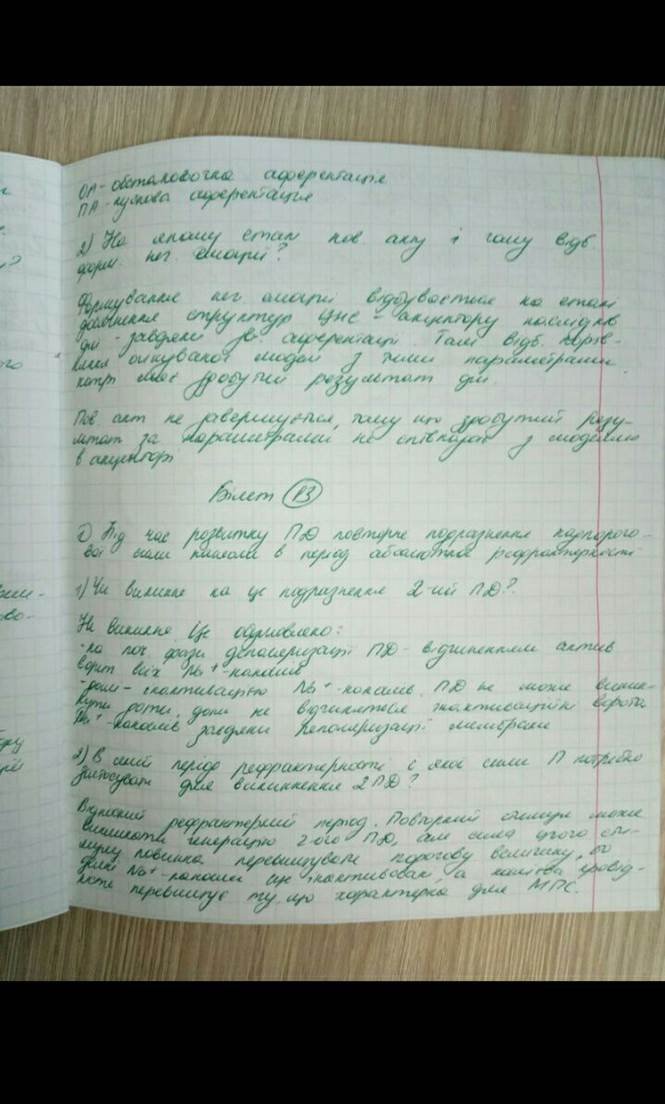 ОА - обстановочна аферентація
ПА - пускова аферентація
2) На якому етапі пов. акту і чому відб.
форм. нег. емоцій?
Формування нег. емоцій відбувається на етапі
структур ЦНС - акцептору наслідків
дії - завдяки зв. аферентації. Там відб. порів-
няння очікуваної моделі з тими параметрами
котрі має здобутий результат дії.
Пов. акт не завершується, тому що здобутий резу-
льтат за параметрами не співпадає з моделлю
в акцепторі
Білет 13
Під час розвитку ПД повторне подразнення надпорого-
вої сили нанесли в період абсолютної рефрактерності
1) Чи виникне на це подразнення 2-ий ПД?
Не виникне. Це обумовлено:
- на поч. фази деполяризації ПД - відчиненням актив
воріт всіх Na+-каналів
- далі - інактивацією Na+-каналів. ПД не може виник-
нути доти, доки не відчиняться інактиваційні ворота
Na+-каналів завдяки реполяризації мембрани
2) В який період рефрактерності і якої сили П потрібно
застосувати для виникнення 2 ПД?
Відносний рефрактерний період. Повторний стимул може
викликати генерацію 2-ого ПД, але сила цього сти-
мулу повинна перевищувати порогову величину, бо
деякі Na+-канали ще інактивовані, а калієва провід-
ність перевищує ту, що характерна для МПС.